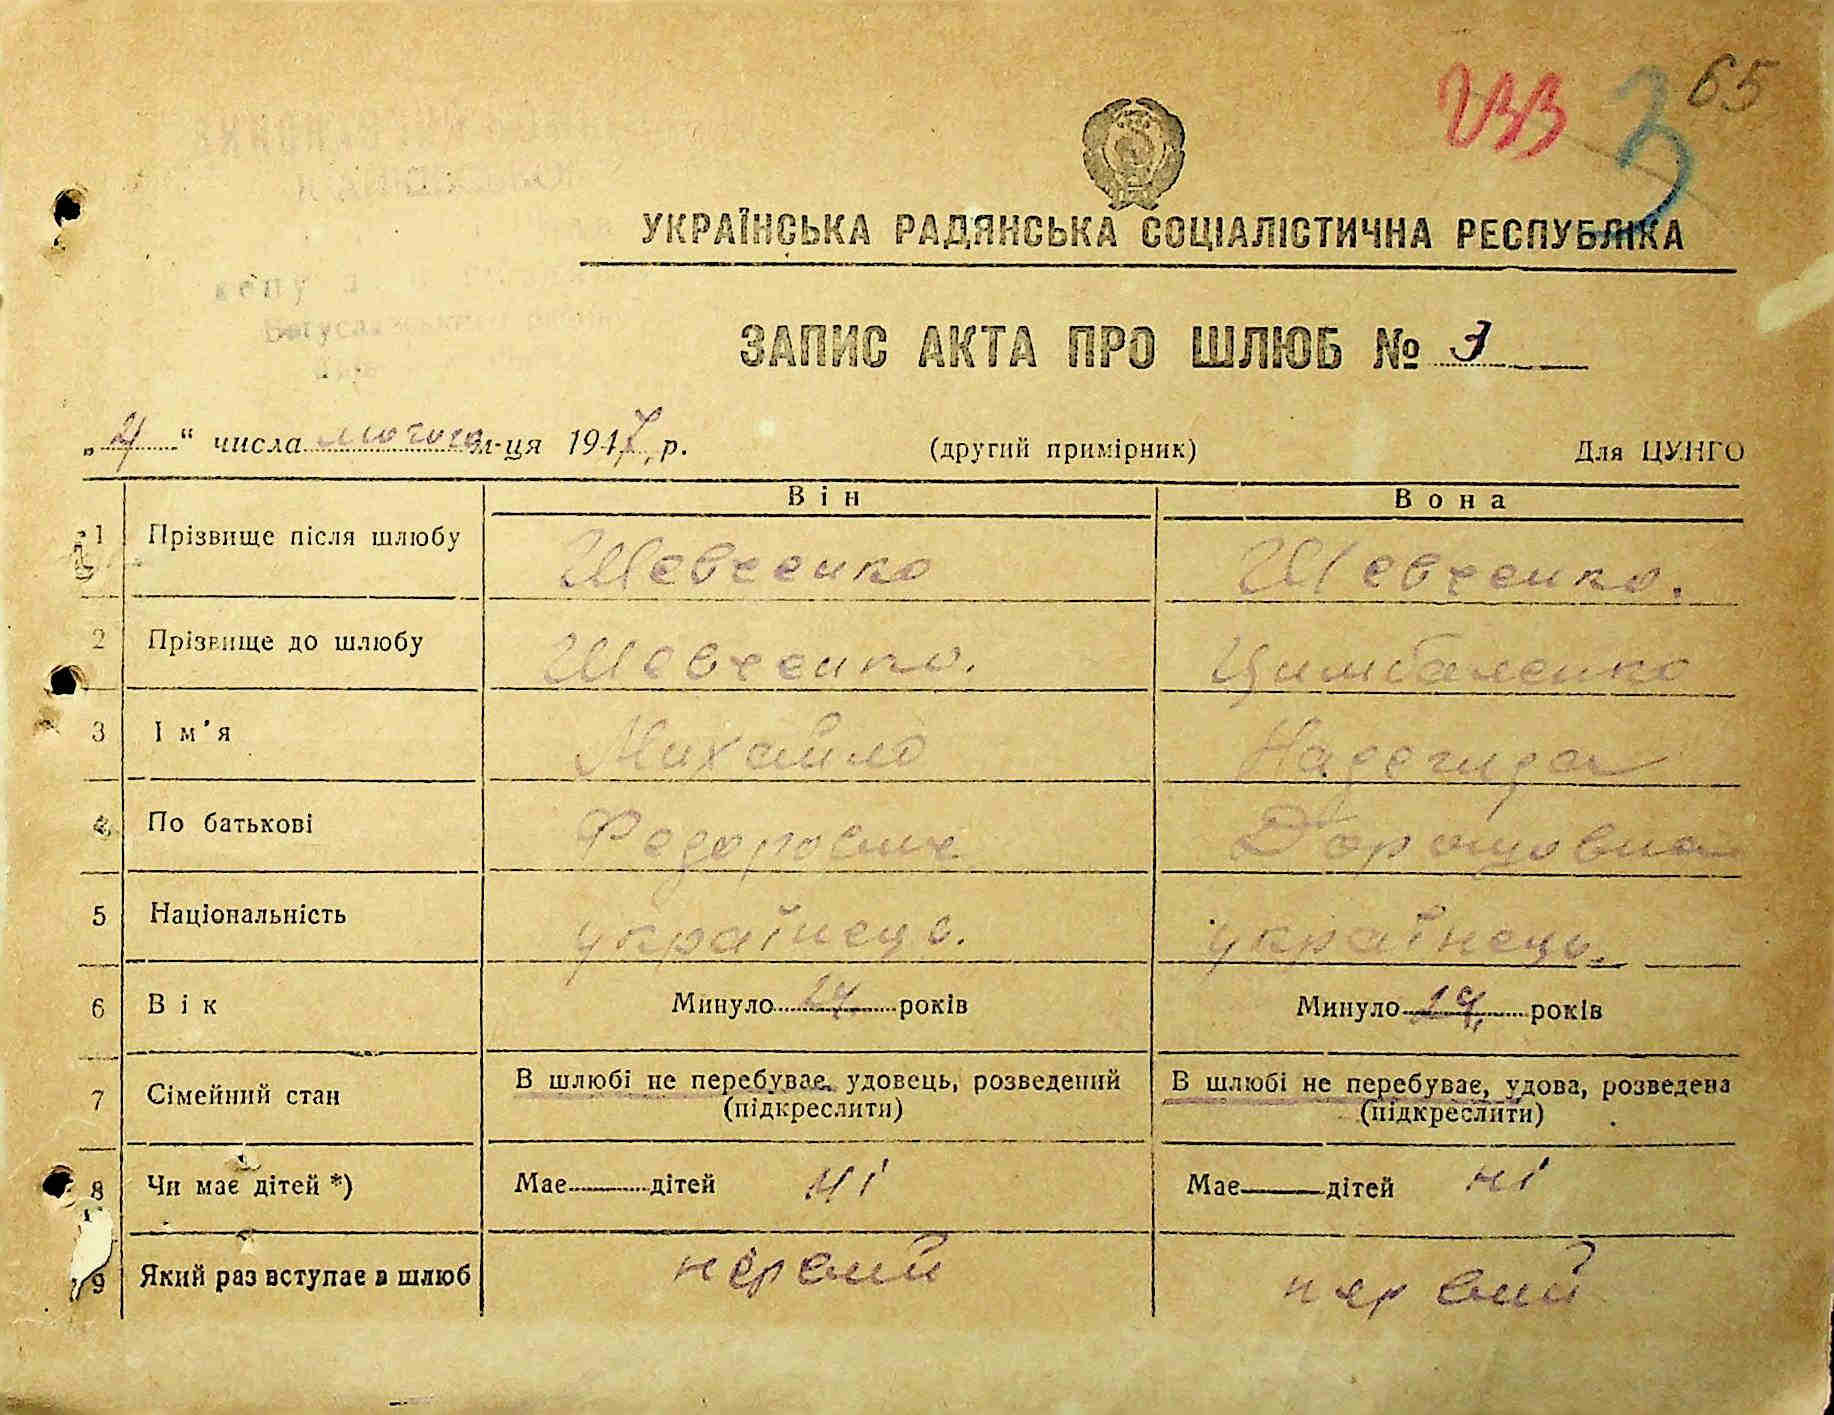 233 3 65
УКРАЇНСЬКА РАДЯНСЬКА СОЦІАЛІСТИЧНА РЕСПУБЛІКА
ЗАПИС АКТА ПРО ШЛЮБ № 3
„4“ числа лютого м-ця 1947 р. (другий примірник) Для ЦУНГО
Він Вона
1 Прізвище після шлюбу Шевченко Шевченко.
2 Прізвище до шлюбу Шевченко. Цимбаленко
3 Ім'я Михайло
4 По батькові Федорович
5 Національність українець. українець.
6 Вік Минуло 24 років Минуло років
7 Сімейний стан В шлюбі не перебуває, удовець, розведений В шлюбі не перебуває, удова, розведена
(підкреслити) (підкреслити)
8 Чи має дітей *) Має дітей ні Має дітей ні
9 Який раз вступає в шлюб первий первий